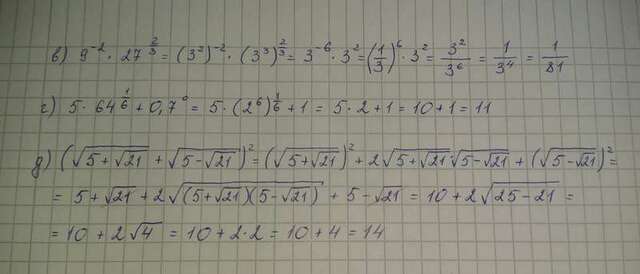 в) 9^{-2} · 27^{\frac{2}{3}} = (3²)^{-2} · (3³)^{\frac{2}{3}} = 3^{-6} · 3² = (\frac{1}{3})^6 · 3² = \frac{3²}{3^6} = \frac{1}{3^4} = \frac{1}{81}
г) 5 · 64^{\frac{1}{6}} + 0,7^0 = 5 · (2^6)^{\frac{1}{6}} + 1 = 5 · 2 + 1 = 10 + 1 = 11
д) (√(5+√21) + √(5-√21))² = (√(5+√21))² + 2√(5+√21)√(5-√21) + (√(5-√21))² =
= 5+√21 + 2√((5+√21)(5-√21)) + 5-√21 = 10 + 2√(25-21) =
= 10 + 2√4 = 10 + 2·2 = 10 + 4 = 14